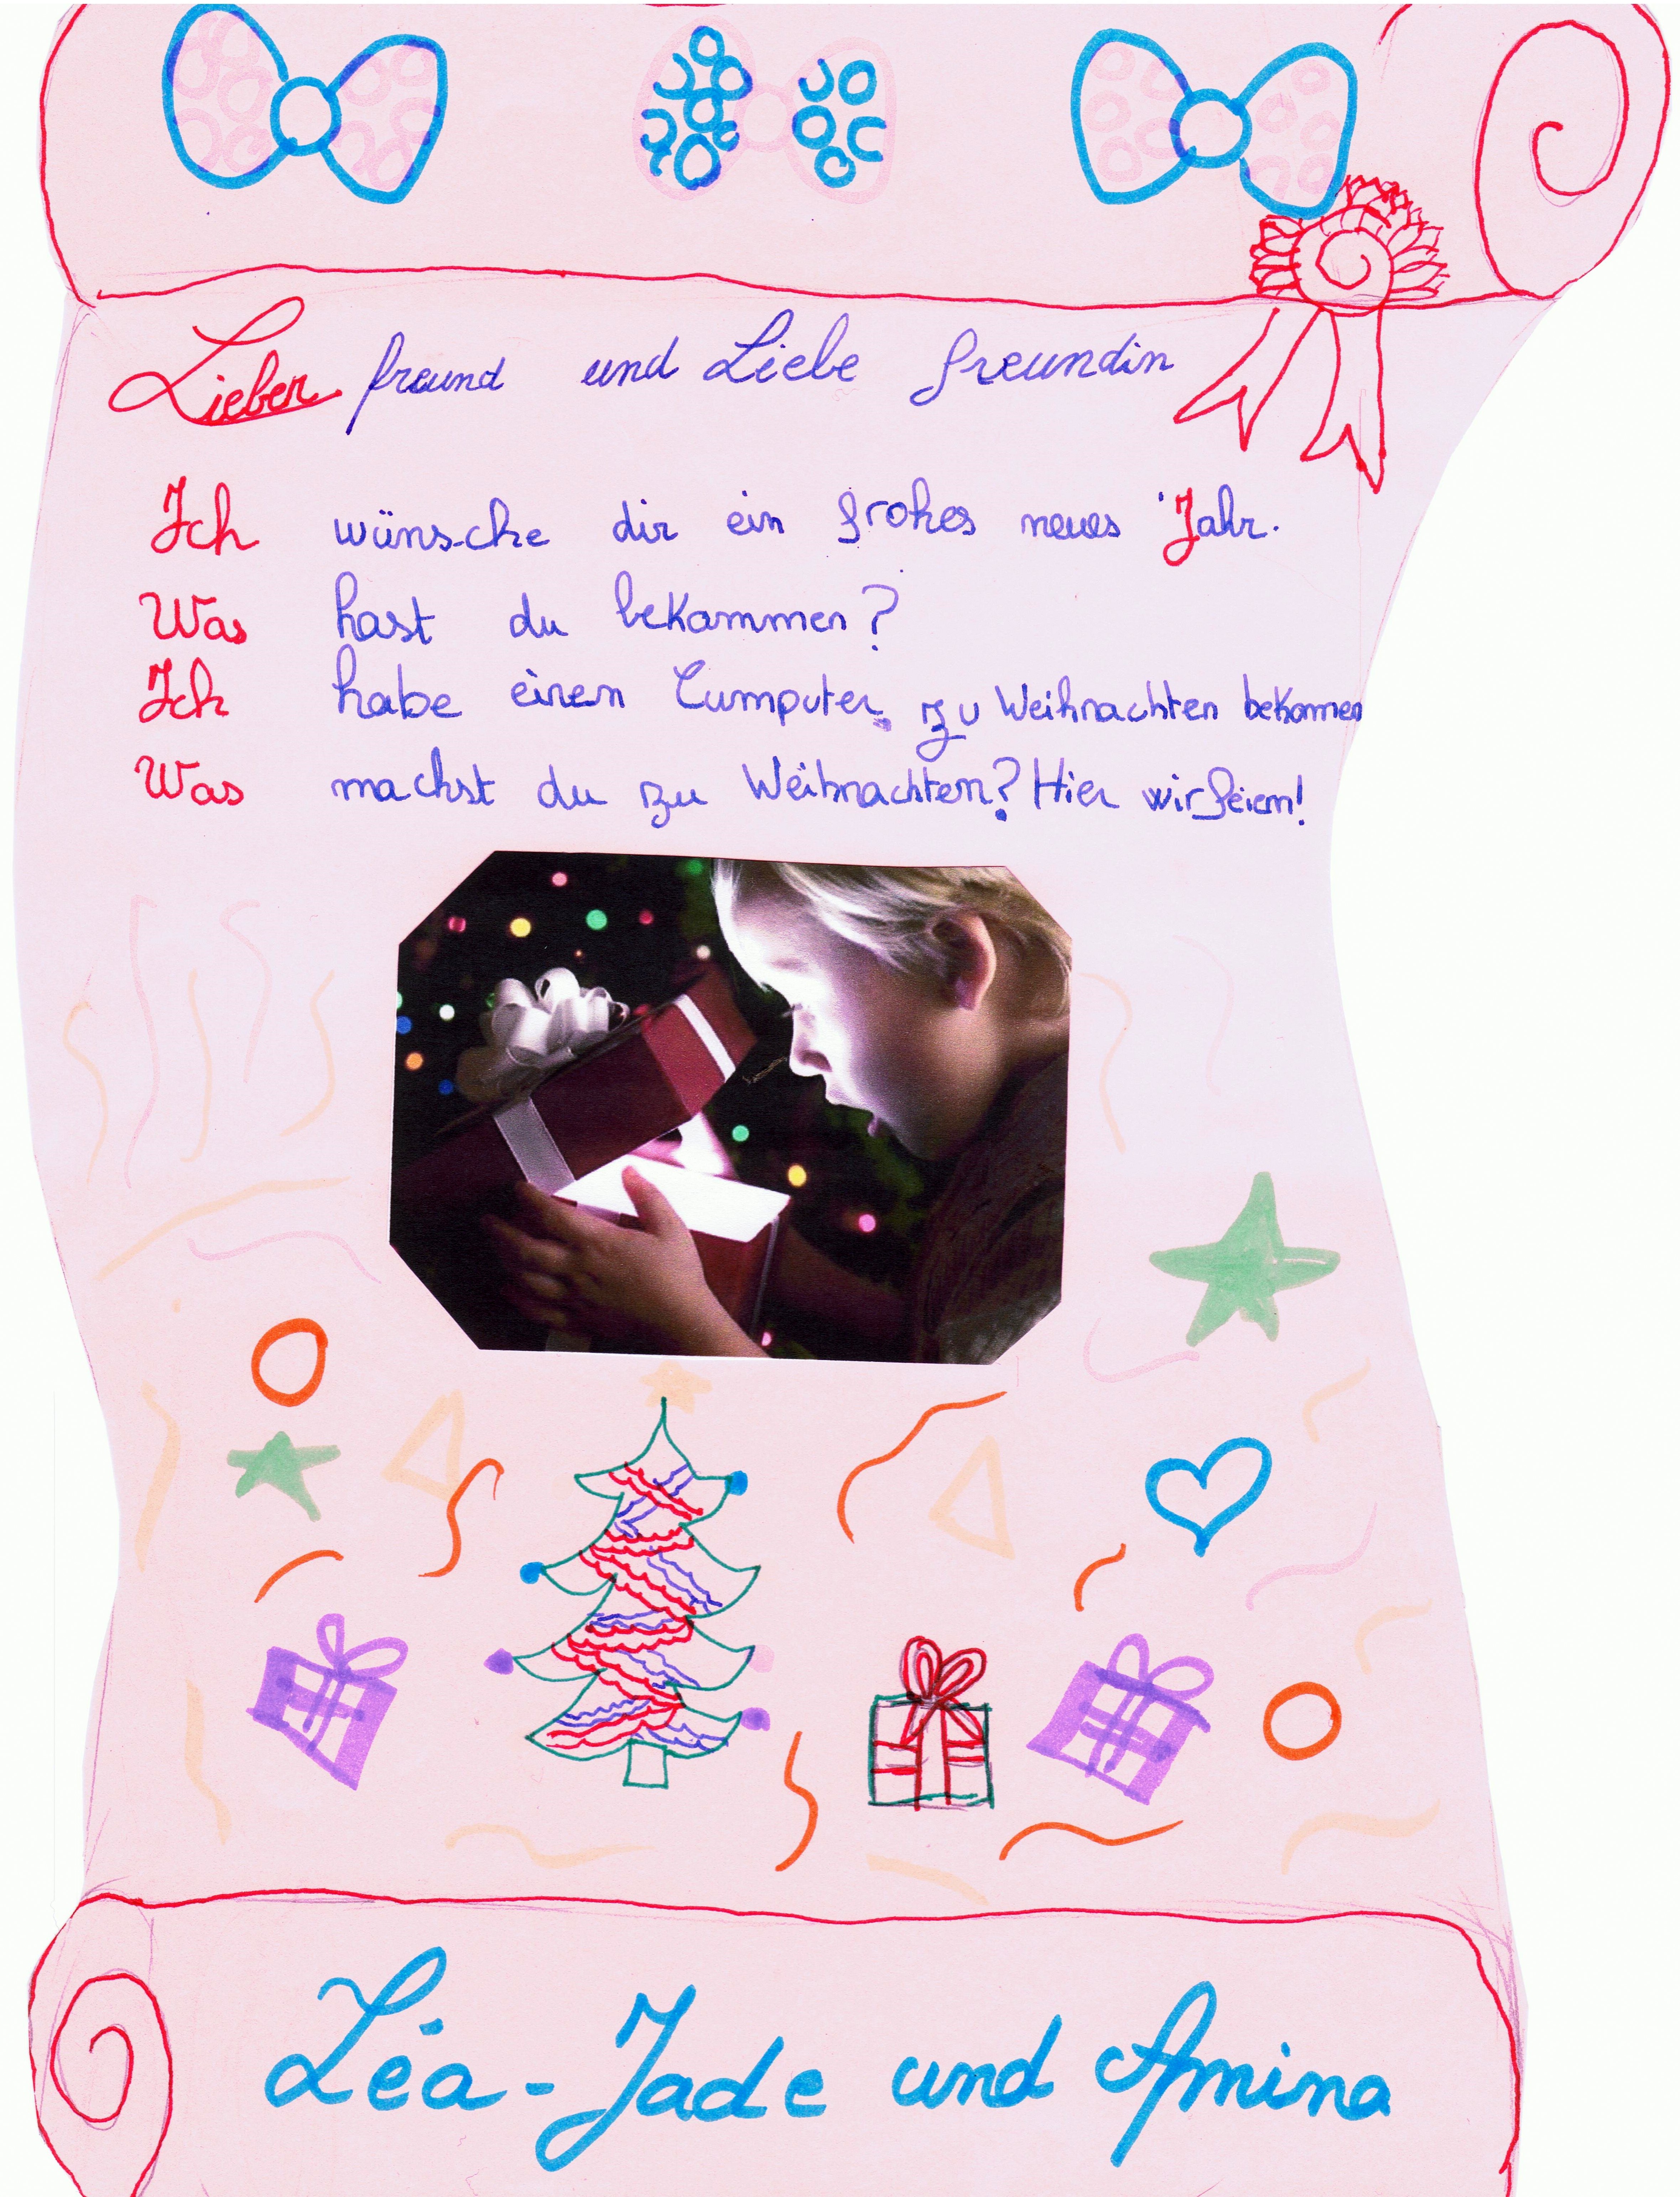 Lieber freund und Liebe freundin
Ich wünsche dir ein frohes neues Jahr.
Was hast du bekammen?
Ich habe einen Cumputer zu Weihnachten bekommen
Was machst du zu Weihnachten? Hier wir feiern!
Léa-Jade und Amina